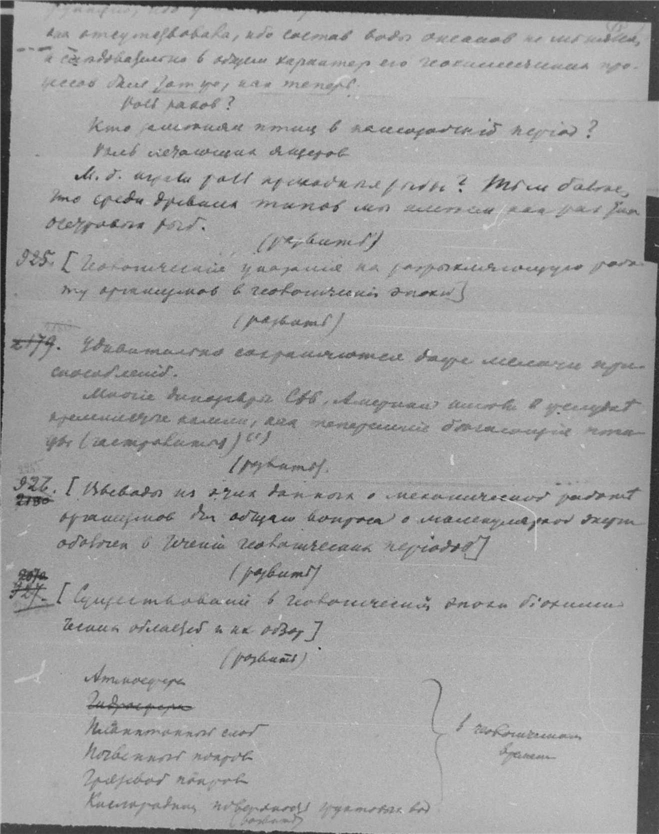 отсутствовала, ибо состав воды океанов не менялся,
и следовательно в общем характер его геохимических про-
цессов был тот же, как теперь.
Роль раков?
Кто заменял птиц в палеозойский період?
Роль летающих ящеров
М. б. играли роль проходныя рыбы? Тем более,
что среди древних типов мы имеем как раз
осетровых рыб.
(развить)
925. [Геологическія указания на разрыхляющую рабо-
ту организмов в геологическія эпохи]
(развить)
2179. Удивительно сохраняются даже мелочи при-
способленій.
Многіе динозавры Сев. Америки имели в желудке
кремневые камни, как теперешнія бегающія пти-
цы (гастролиты) (1)
(развить).
926. [Выводы из этих данных о механической работе
2180
организмов для общаго вопроса о молекулярной
оболочек в теченіи геологических періодов]
(развить)
927. [Существованій в геологическія эпохи біохими-
ческих областей и их обзор]
(развить)
Атмосфера
Гидросфера
Планктонный слой
Почвенный покров
в геологическом
времени
Грязевой покров
Кислородная поверхность грунтовых вод
(развить)